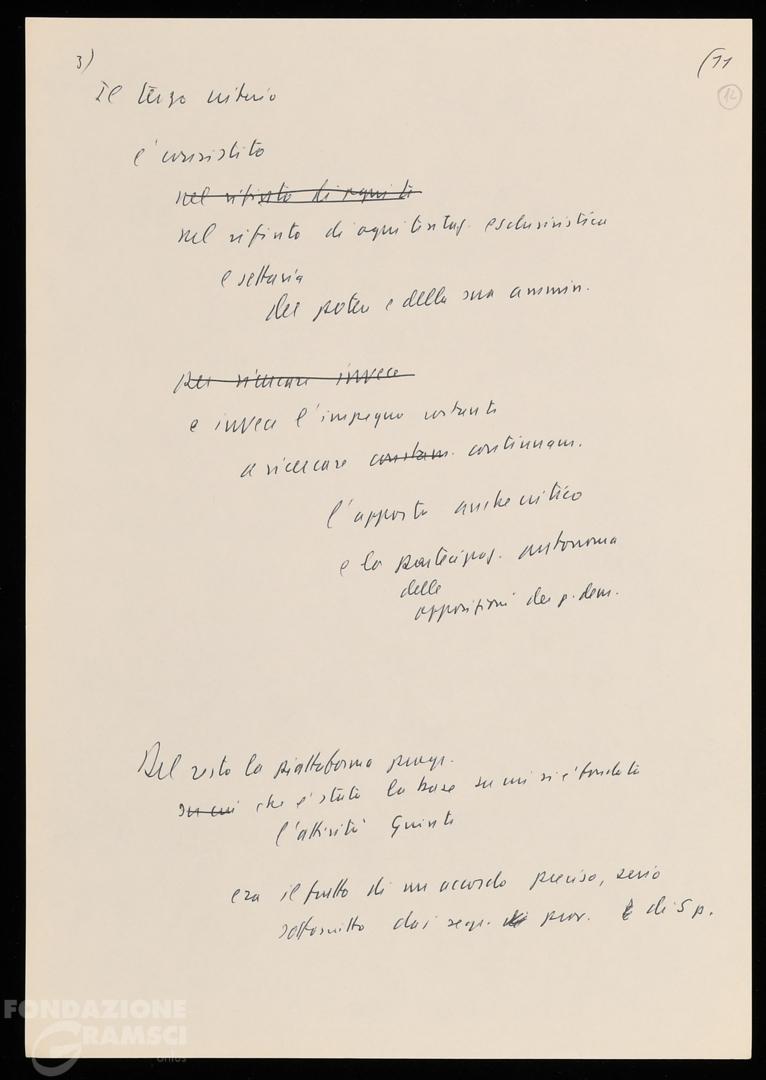 3)
(11
12
Il terzo criterio
e' consistito
nel rifiuto di ogni te
nel rifiuto di ogni tentaz. esclusivistica
e settaria
del potere e della sua ammin.
Per ricercare invece
e invece l'impegno costante
a ricercare constam. continuam.
l'apporto anche critico
e la partecipaz. autonoma
delle
opposizioni dei p. dem.
Del resto la piattaforma progr.
su cui che e' stata la base su cui si e' fondata
l'attività Giunta
era il frutto di un accordo preciso, serio
sottoscritto dai segr. prov. di 5 p.
FONDAZIONE
GRAMSCI
onlus